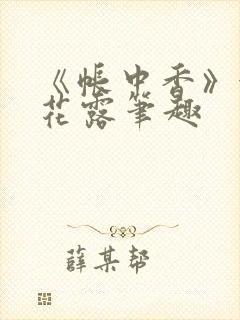 《帐中香》
花露笔趣
薛某帮